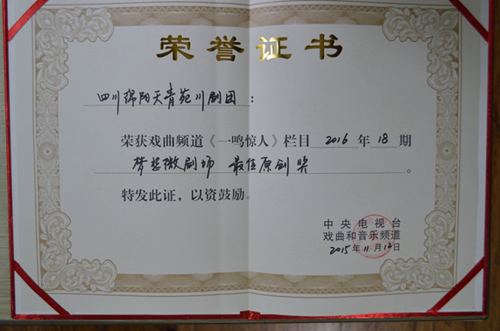 荣誉证书
四川绵阳天青苑川剧团：
荣获戏曲频道《一鸣惊人》栏目 2016 年 18 期
梦想微剧场 最佳原创奖 。
特发此证，以资鼓励。
中央电视台
戏曲和音乐频道
2015年11月12日